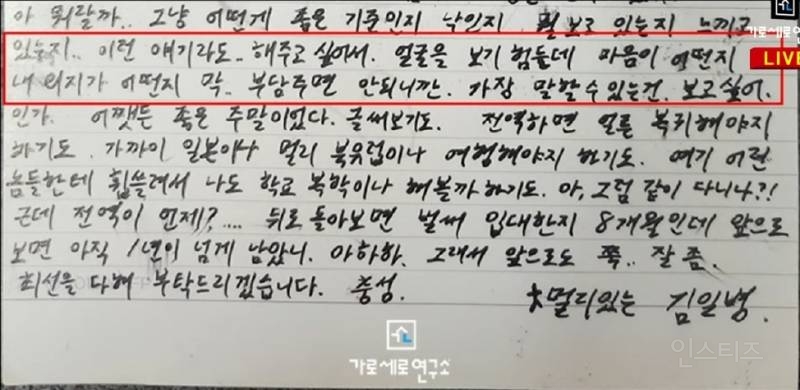 아 뭐랄까.. 그냥 어떤게 좋은 기준인지 낙인지 뭘 보고 있는지 느끼고
있는지.. 이런 얘기라도.. 해주고 싶어서. 얼굴을 보기 힘든데 마음이 어떤지
LIVE
내 의지가 어떤지 막.. 부담주면 안되니깐. 가장 말할 수 있는건. 보고싶어.
인가. 어쨋든 좋은 주말이었다. 글써보기도. 전역하면 얼른 복귀해야지
하기도. 가까이 일본이나 멀리 북유럽이나 여행해야지 하기도. 여기 어린
놈들한테 휩쓸려서 나도 학교 복학이나 해볼까 하기도. 아, 그럼 같이 다니나?!
근데 전역이 언제?.... 뒤로 돌아보면 벌써 입대한지 8개월인데 앞으로
보면 아직 1년이 넘게 남았니. 아하하. 그래서 앞으로도 쭉.. 잘 좀.
최선을 다해 부탁드리겠습니다. 충성.
멀리있는 김일병.
가로세로연구소
인스티즈